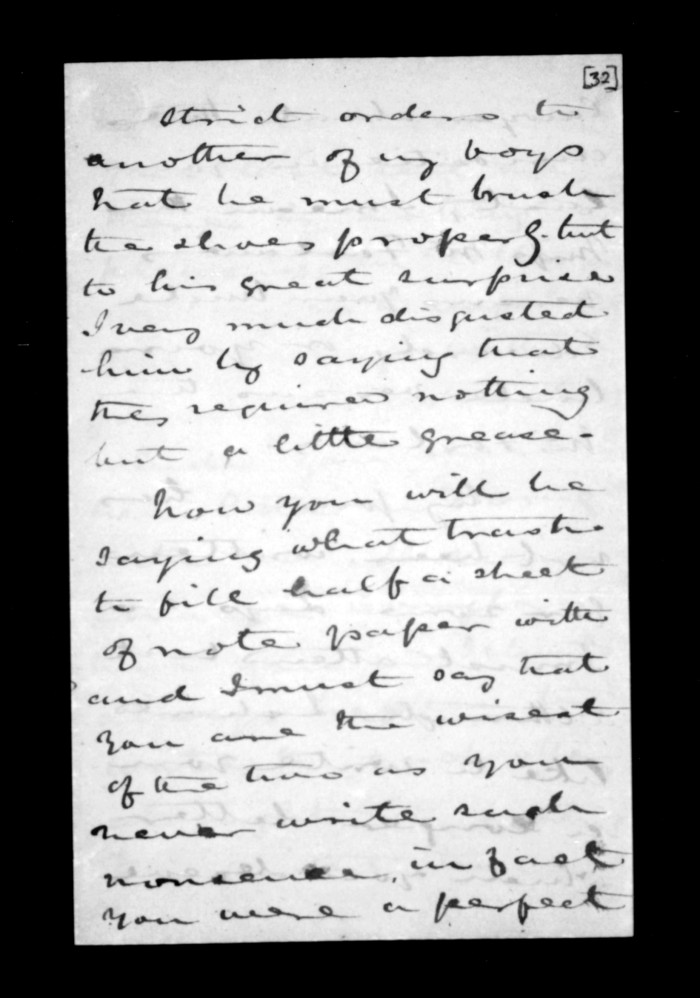 [32]
strict orders to
another of my boys
that he must brush
the shoes properly. but
to his great surprise
I very much disgusted
him by saying that
they required nothing
but a little grease -
Now you will be
saying what trash
to fill half a sheet
of note paper with
and I must say that
you are the wisest
of the two as you
never write such
nonsense, in fact
you were a perfect